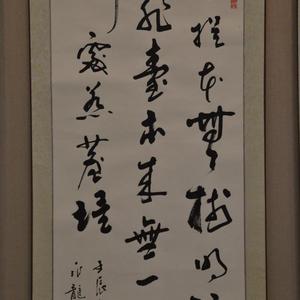 提本無樹明
非臺本來無一
處惹塵埃
壬辰
龍